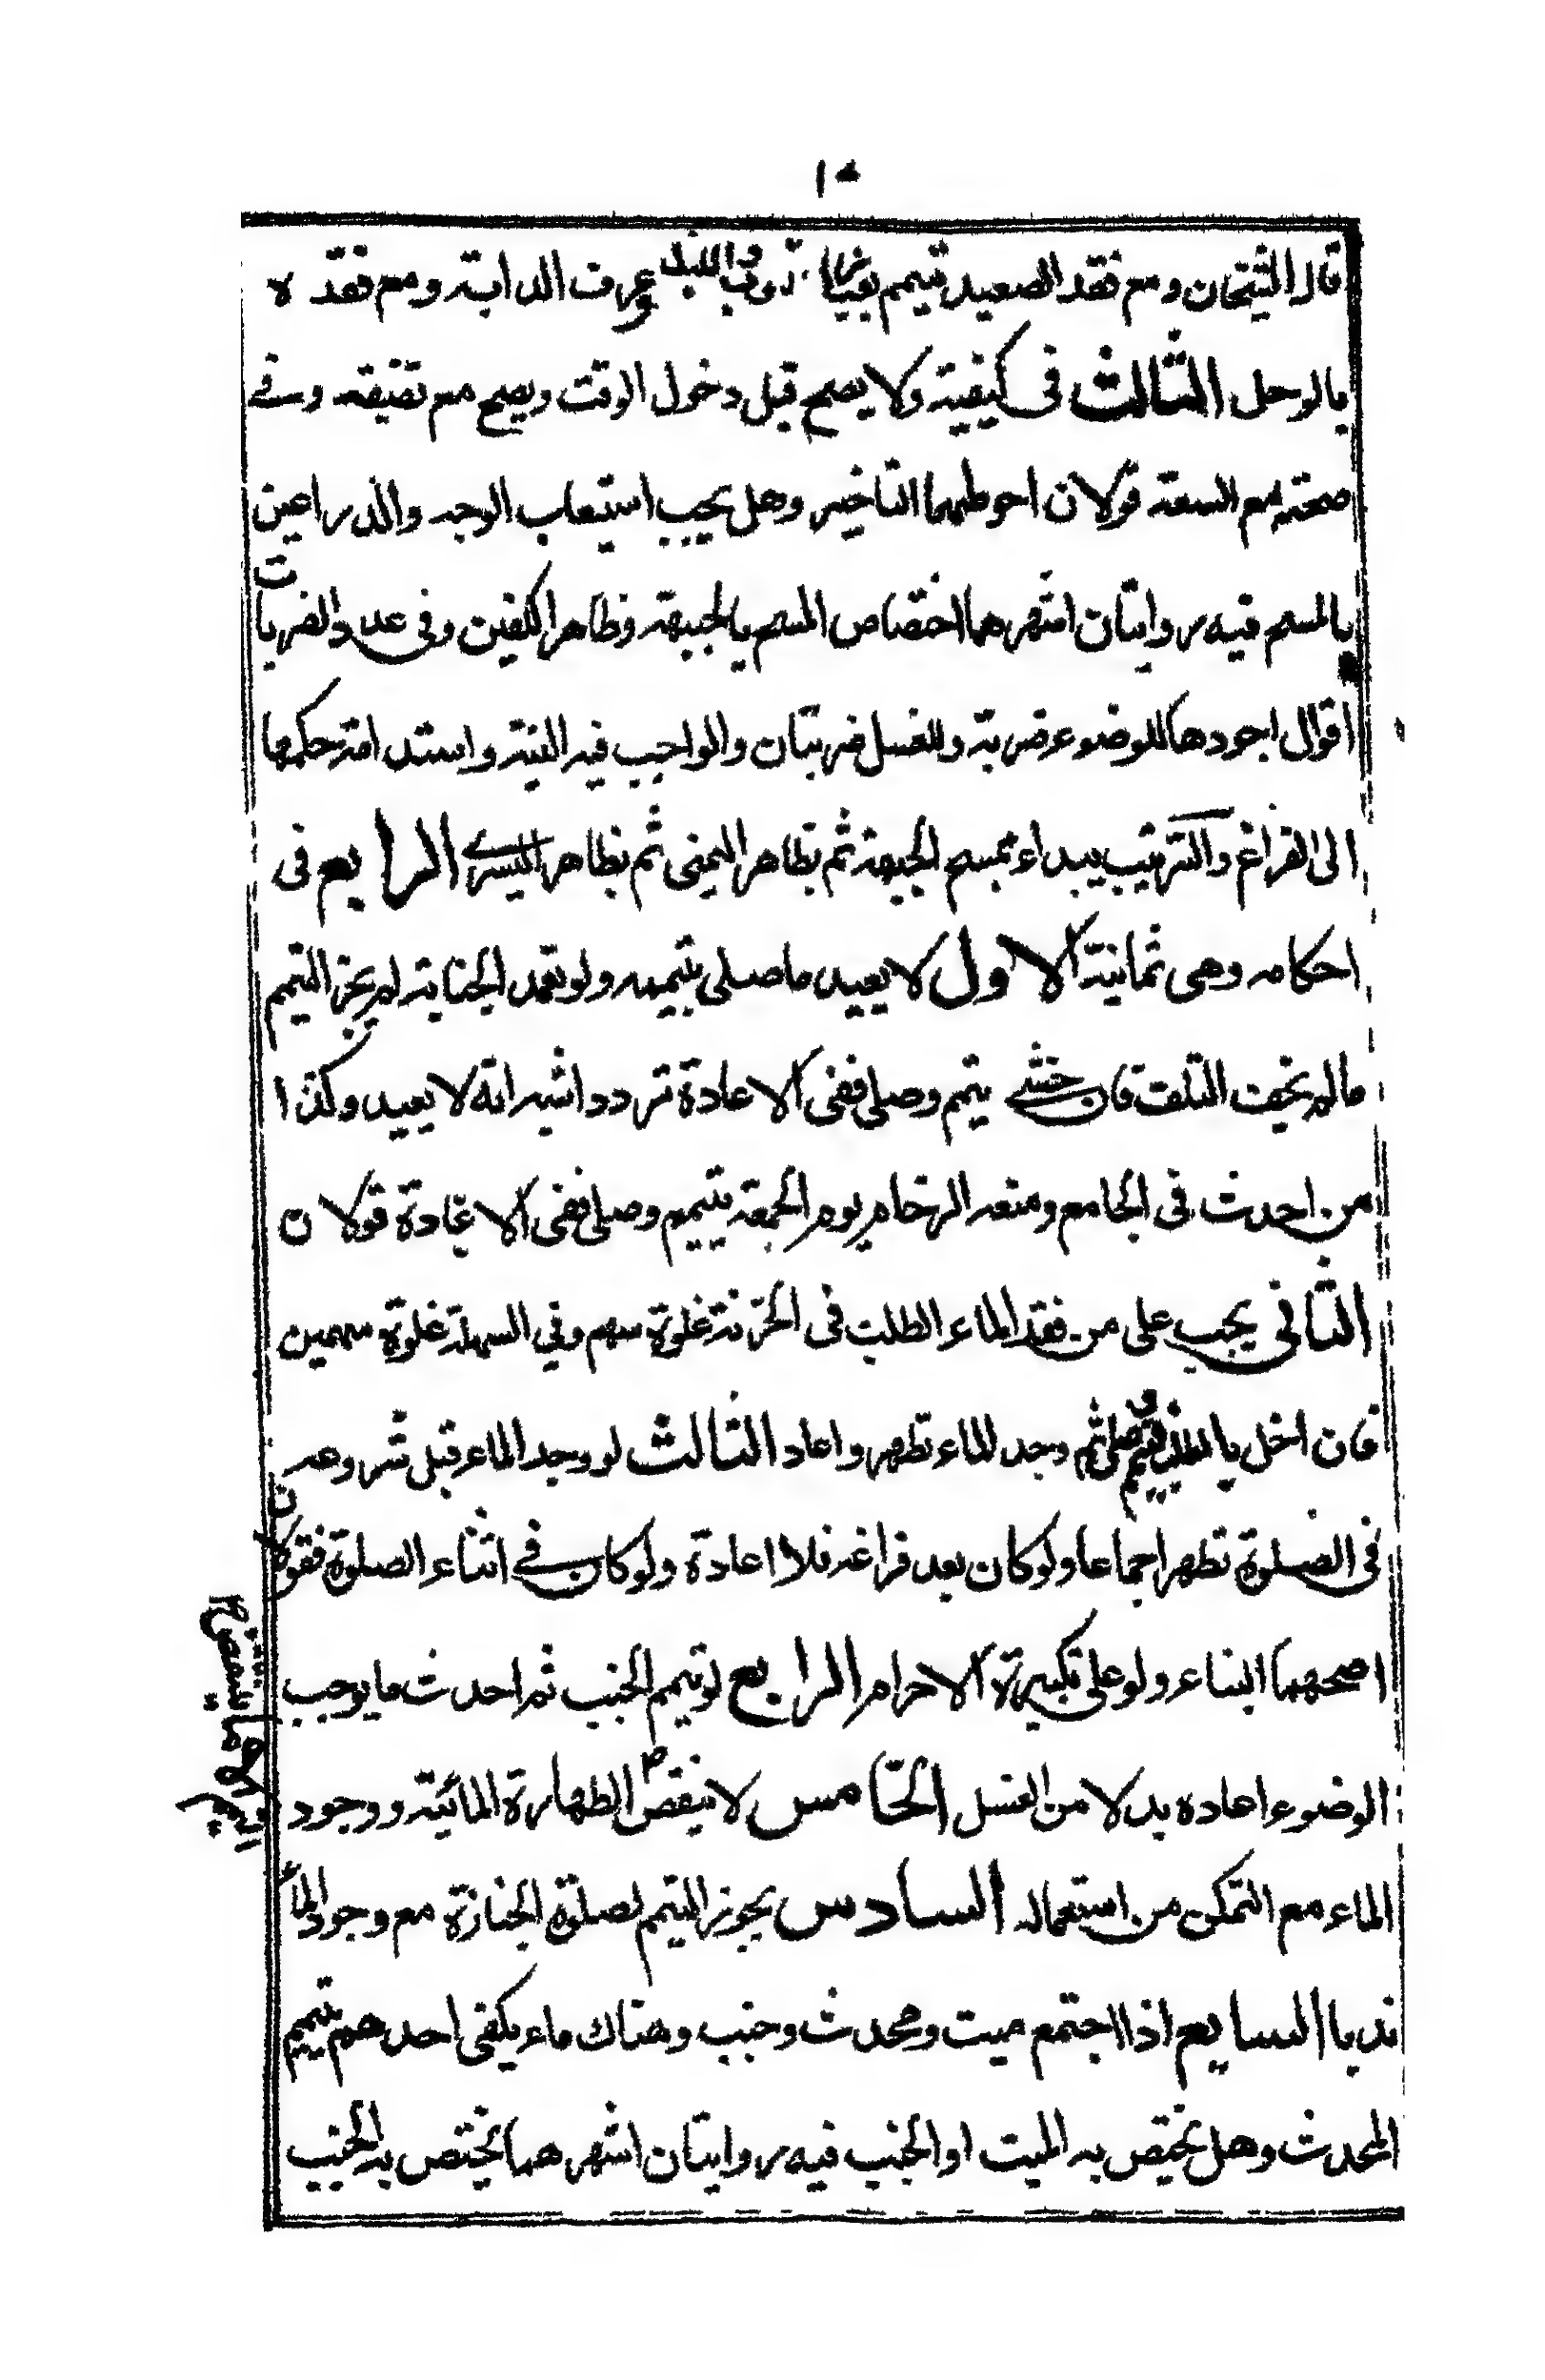 قال الشيخان ومع فقد الصعيد تيمم بغبار ثوب واللبد وعرف الدابة ومع فقده
بالوحل الثالث فى كيفية ولا يصح قبل دخول الوقت ويصح مع تضيقه وفے
صحته مع السعة قولان احوطهما التاخير وهل يجب استيعاب الوجه والذراعين
بالمسح فيه روايتان اشهرهما اختصاص المسح بالجبهة وظاهر الكفين وفى عدد الضربات
اقوال اجودها للوضوء ضربة وللغسل ضربتان والواجب فيه النية واستدامة حكمها
الى الفراغ والترتيب يبداء بمسح الجبهة ثم بظاهر اليمنى ثم بظاهر اليسرے الرابع فى
احكامه وهى ثمانية الاول لا يعيد ما صلى بتيممه ولو تعمد الجنابة لم يجز التيمم
مالم يخف التلف فان خشے يتمم وصلى ففى الاعادة تردد اشبه انه لا يعيد وكذا
من احدث فى الجامع ومنعه الزحام يوم الجمعة يتيمم وصلى ففى الاعادة قولان
الثانى يجب على من فقد الماء الطلب فى الحزنة غلوة سهم وفي السهلة غلوة سهمين
فان اخل بالطلب فتيمم وصلى ثم وجد الماء تطهر واعاد الثالث لو وجد الماء قبل شروعه
فى الصلوة تطهر اجماعا ولو كان بعد فراغه فلا اعادة ولو كان فے اثناء الصلوة فقولان
اصحهما البناء ولو على تكبيرة الاحرام الرابع لو تيمم الجنب ثم احدث ما يوجب
الوضوء اعاده بدلا من الغسل الخامس لا ينقض الطهارة المائية ووجود
الماء مع التمكن من استعماله السادس يجوز التيمم لصلوة الجنازة مع وجود الماء
ندبا السابع اذا اجتمع ميت ومحدث وجنب وهناك ماء يكفى احدهم يتيمم
المحدث وهل يختص به الميت او الجنب فيه روايتان اشهرهما يختص به الجنب